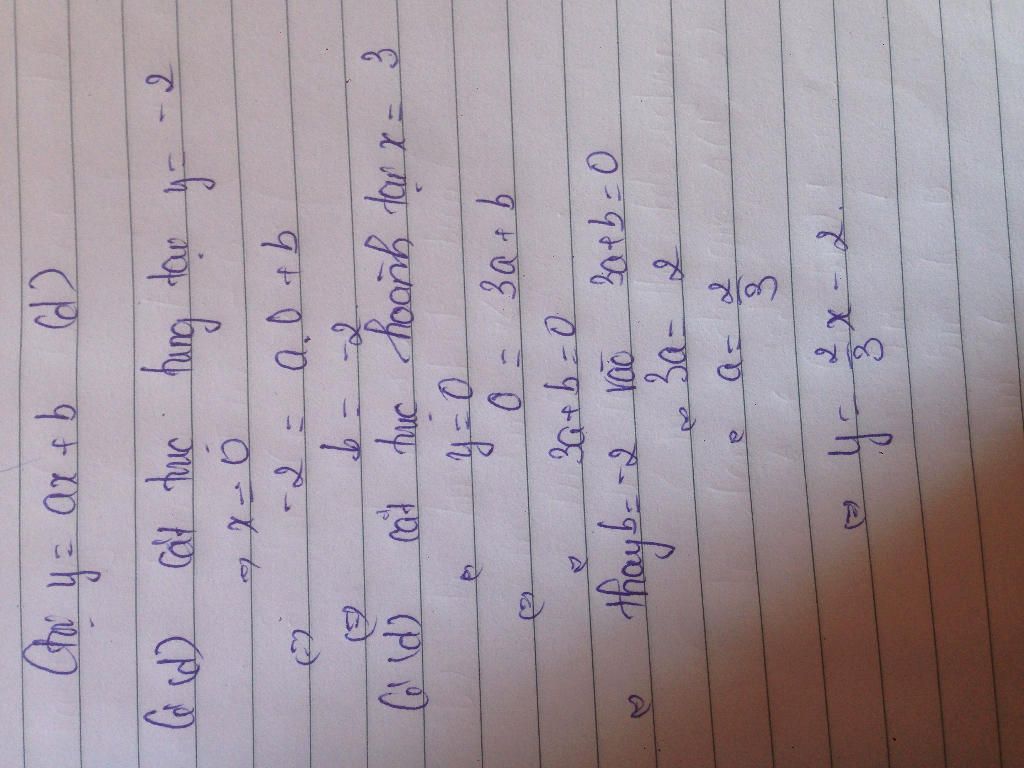 Gọi y = ax + b (d)
Có (d) cắt trục tung tại y = -2
=> x = 0
(=) -2 = a.0 + b
(=) b = -2
Có (d) cắt trục hoành tại x = 3
y = 0
(=) 0 = 3a + b
3a + b = 0
thay b = -2 vào 3a + b = 0
3a = 2
a = 2/3
(=) y = 2/3 x - 2.